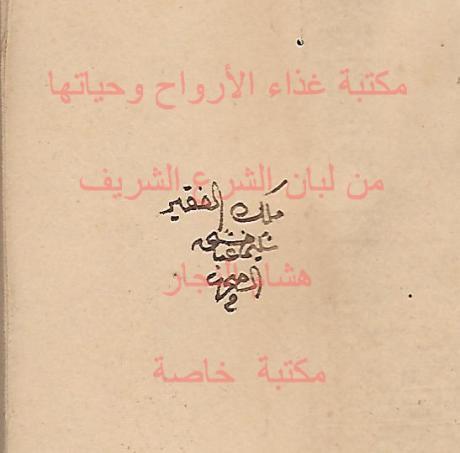 مكتبة غذاء الأرواح وحياتها
من لبان الشرع الشريف
ملك الفقير
هشام النجار
مكتبة خاصة